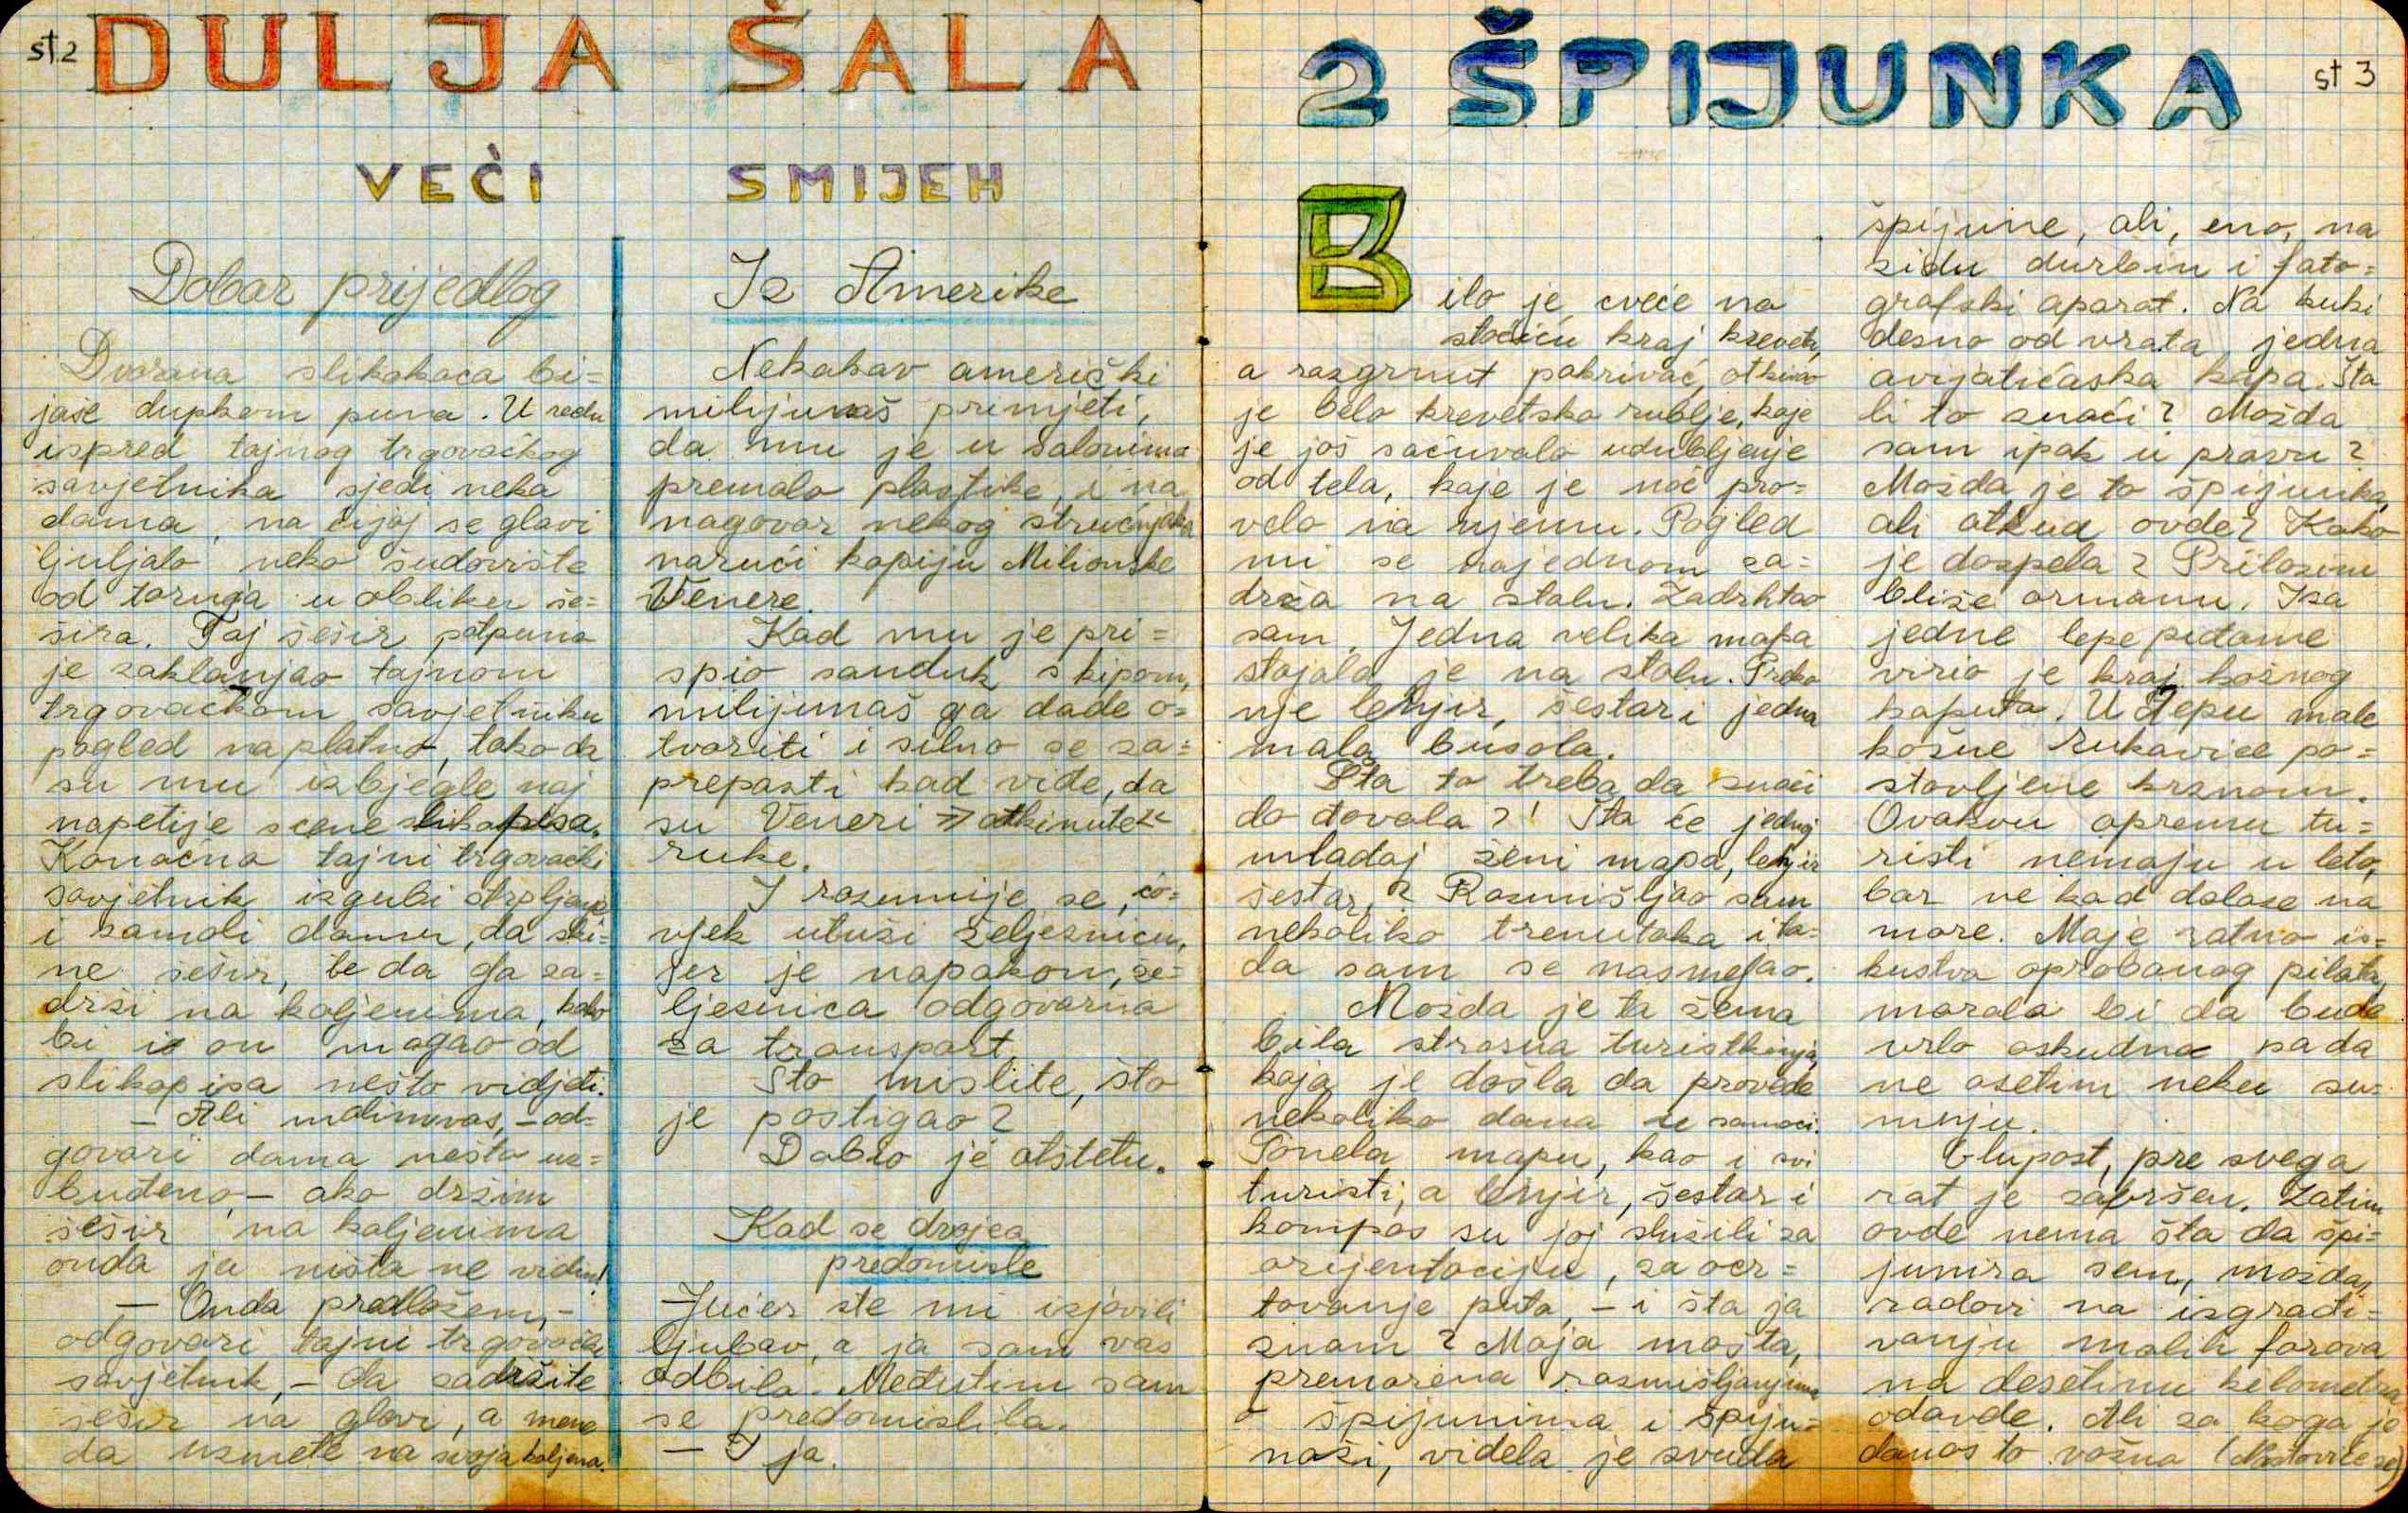 st.2
DULJA ŠALA
VEĆI SMIJEH
Dobar prijedlog
Dvorana slikokaza bi=
jaše dupkom puna. U redu
ispred tajnog trgovačkog
savjetnika sjedi neka
dama, na čijoj se glavi
ljuljalo neko čudovište
od tornja u obliku še=
šira. Taj šešir potpuno
je zaklanjao tajnom
trgovačkom savjetniku
pogled na platno, tako da
su mu izbjegle naj
napetije scene slikopisa.
Konačno tajni trgovački
savjetnik izgubi strpljenje
i zamoli damu, da ski=
ne šešir, te da ga za=
drži na koljenima, kako
bi i on mogao od
slikopisa nešto vidjeti.
— Ali molim vas, – od=
govori dama nešto uz=
buđeno – ako držim
šešir na koljenima
onda ja ništa ne vidim!
— Onda predložem, –
odgovori tajni trgovački
savjetnik, – da zadržite
šešir na glavi, a mene
da uzmete na svoja koljena.
Iz Amerike
Nekakav američki
milijunaš primjeti,
da mu je u salonima
premalo plastike, i na
nagovor nekog stručnjaka
naruči kopiju Milionske
Venere.
Kad mu je pri=
spio sanduk s kipom,
milijunaš ga dade o=
tvoriti i silno se za=
prepasti kad vide, da
su Veneri »otkinute«
ruke.
I razumije se, čo=
vjek utuži željeznicu,
jer je napokon, že=
ljeznica odgovorna
za transport.
Što mislite, što
je postigao?
Dobio je otštetu.
Kad se dvojca
predomisle
– Jučer ste mi izjavili
ljubav, a ja sam vas
odbila. Međutim sam
se predomislila.
— I ja.
2 ŠPIJUNKA
st 3
Bilo je cveće na
stočiću kraj kreveta,
a razgrnut pokrivač, otkrivao
je belo krevetsko rublje, koje
je još sačuvalo udubljenje
od tela, koje je noć pro=
velo na njemu. Pogled
mi se najednom za=
drža na stolu. Zadrhtao
sam. Jedna velika mapa
stojala je na stolu. Preko
nje lenjir, šestar i jedna
mala busola.
Šta to treba da znači
do đavola?! Šta će jednoj
mladoj ženi mapa, lenjir
šestar? Razmišljao sam
nekoliko trenutaka i ta=
da sam se nasmejao.
Možda je ta žena
bila strasna turistkinja,
koja je došla da provede
nekoliko dana u samoći.
Ponela mapu, kao i svi
turisti, a lenjir, šestar i
kompas su joj služili za
orijentaciju, za ocr=
tavanje puta, – i šta ja
znam? Moja mašta,
premorena razmišljanjima
o špijunima i špiju=
naži, videla je svuda
špijune, ali, eno, na
zidu durbin i foto=
grafski aparat. Na kuki
desno od vrata jedna
avijatičarska kapa. Šta
li to znači? Možda
sam ipak u pravu?
Možda je to špijunka,
ali otkud ovde? Kako
je dospela? Prilazim
bliže ormanu. Iza
jedne lepe pidžame
virio je kraj kožnog
kaputa. U džepu male
kožne rukavice po=
stavljene krznom.
Ovakvu opremu tu=
risti nemaju u leto,
bar ne kad dolaze na
more. Moje ratno is=
kustvo oprobanog pilota,
moralo bi da bude
vrlo oskudno pa da
ne osetim neku su=
mnju.
Glupost, pre svega
rat je završen. Zatim
ovde nema šta da špi=
junira sem, možda,
radovi na izgrađi=
vanju malih farova
na desetinu kilometra
odavde. Ali za koga je
danas to važno (Nastaviće se)